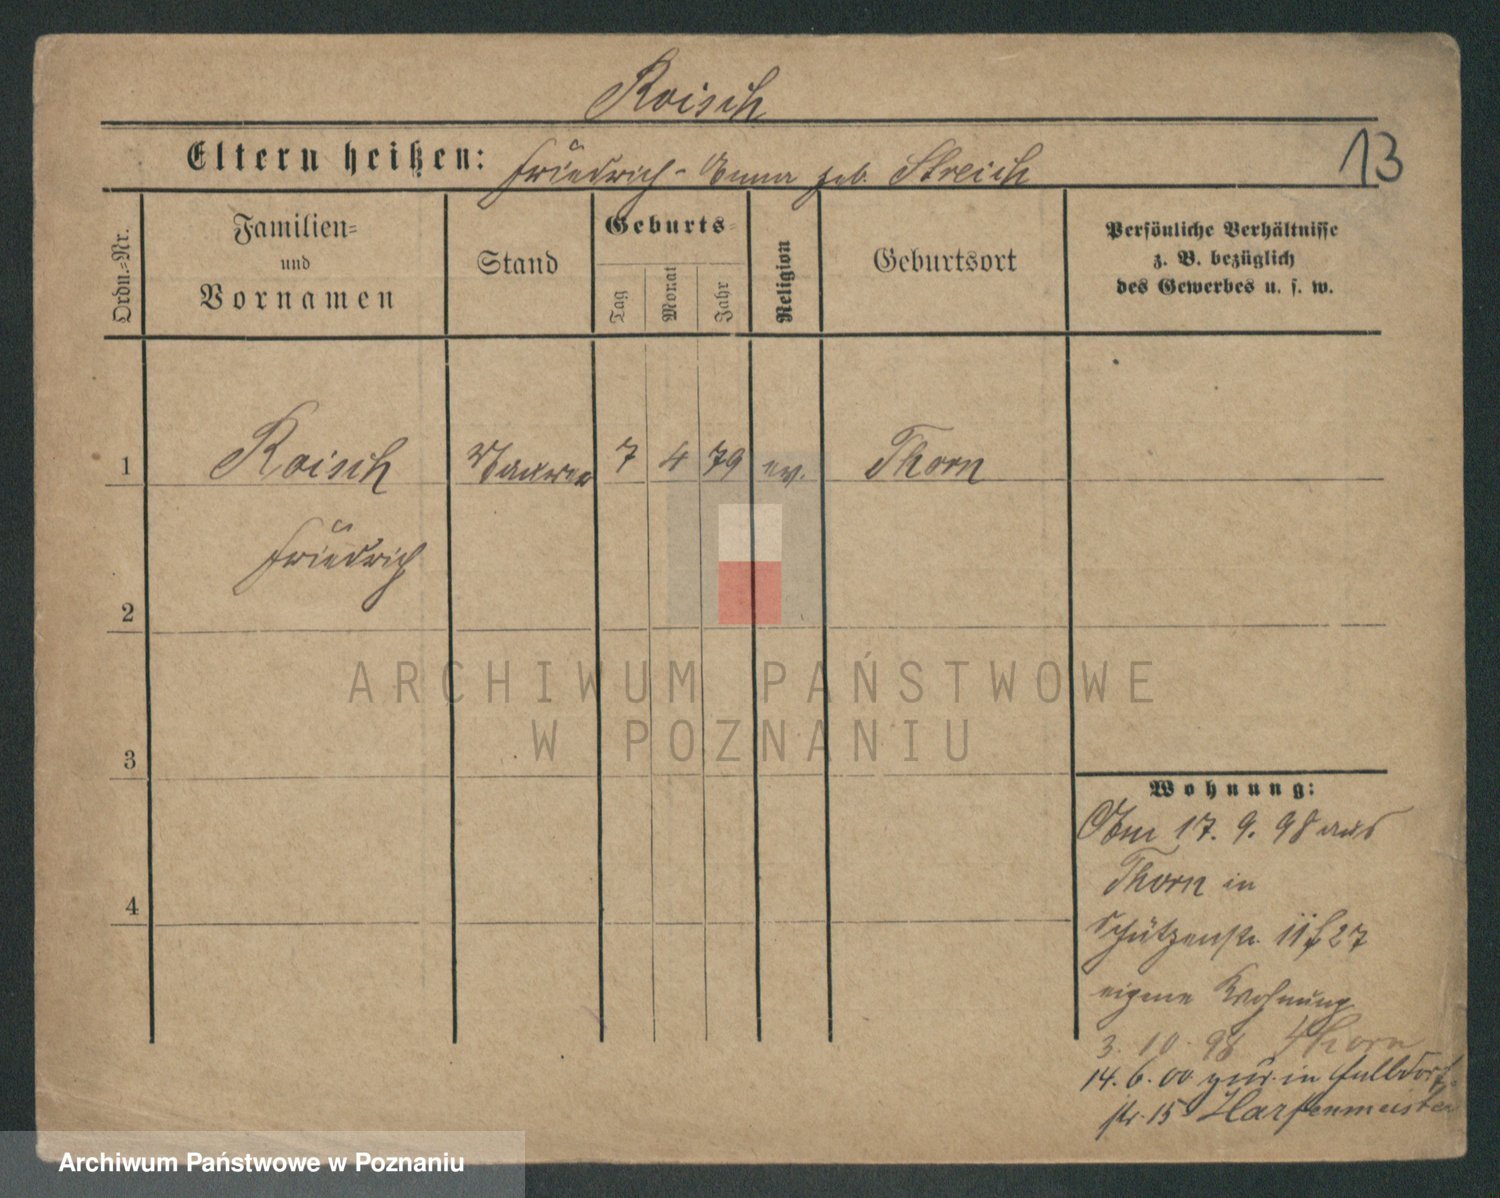 Roisch
Eltern heißen: Friedrich - Anna geb. Streich
13
Ordn.-Nr.
Familien-
und
Vornamen
Stand
Geburts-
Tag
Monat
Jahr
Religion
Geburtsort
Persönliche Verhältnisse
z. B. bezüglich
des Gewerbes u. s. w.
1 Roisch Maurer 7 4 79 ev. Thorn
Friedrich
2
3
4
ARCHIWUM PAŃSTWOWE
W POZNANIU
Wohnung:
Am 17. 9. 98 aus
Thorn in
Schützenstr. 27
eigene Wohnung
3. 10. 98 Thorn
14. 6. 00 zur. in
str. 15 Harfenmeister
Archiwum Państwowe w Poznaniu